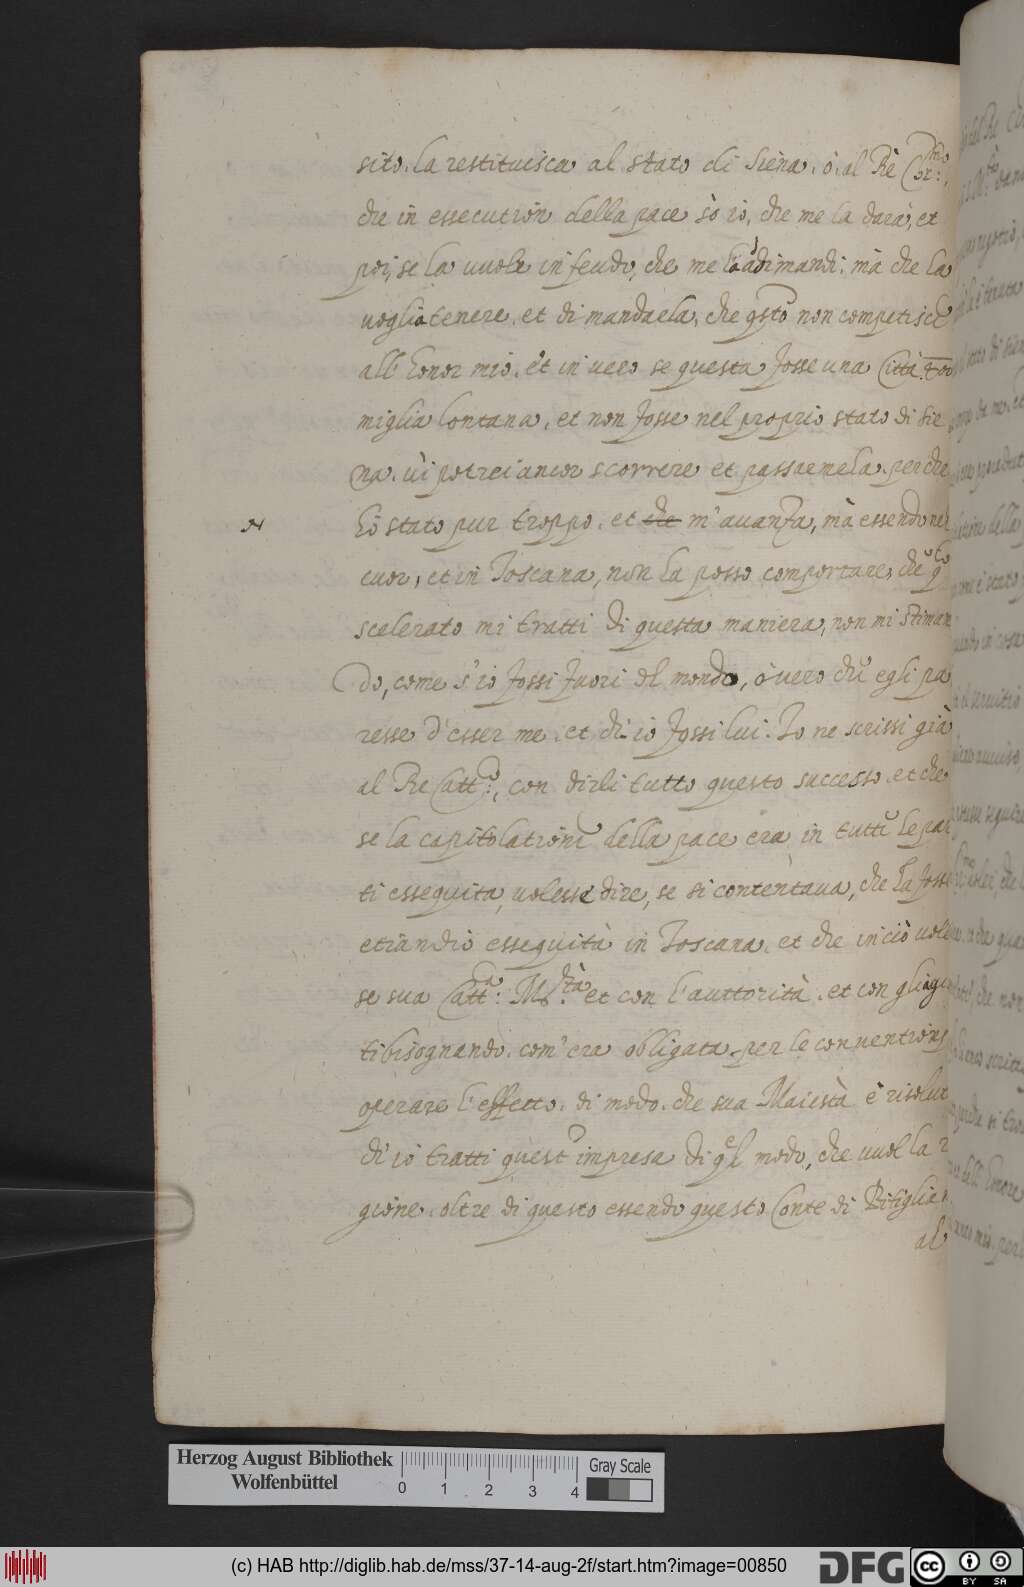 sito. la restituisca al stato di Siena. ò. al Rè Cor:mo,
che in essecution della pace sò io, che me la darà, et
poi, se la vuole in feudo, che me la adimandi. mà che la
voglia tenere. et di mandarla, che qsto non competisce
all' honor mio. et in vero se questa fosse una Città 700
miglia lontana. et non fosse nel proprio stato di Sie
na. vi potrei ancor scorrere et passarmela. perche
N
hò stato pur troppo. et che m'avanza, mà essendo nel
cuor, et in Toscana, non la posso comportare, che qsto
scelerato mi tratti di questa maniera, non mi stiman
do, come s'io fossi fuori del mondo, ò vero che egli pa
resse d'esser me. et ch'io fossi lui. Io ne scrissi già
al Re Catt:co, con dirli tutto questo successo. et che
se la capitolatione della pace era in tutte le par
ti esseguita, volesse dire, se si contentava, che la fosse
etiandio esseguità in Toscana. et che in ciò voles
se sua Catt:ca M:tà et con l'auttorità. et con gli agiu
ti bisognando. com'era obligata per le conventioni
operare l'effetto. di modo. che sua Maiestà è risolut
ch'io tratti quest'impresa di qel modo, che vuol la ra
gione. oltre di questo essendo questo Conte di Pitiglian
al
Herzog August Bibliothek
Wolfenbüttel
0 1 2 3 4
Gray Scale
(c) HAB http://diglib.hab.de/mss/37-14-aug-2f/start.htm?image=00850
DFG
cc BY SA